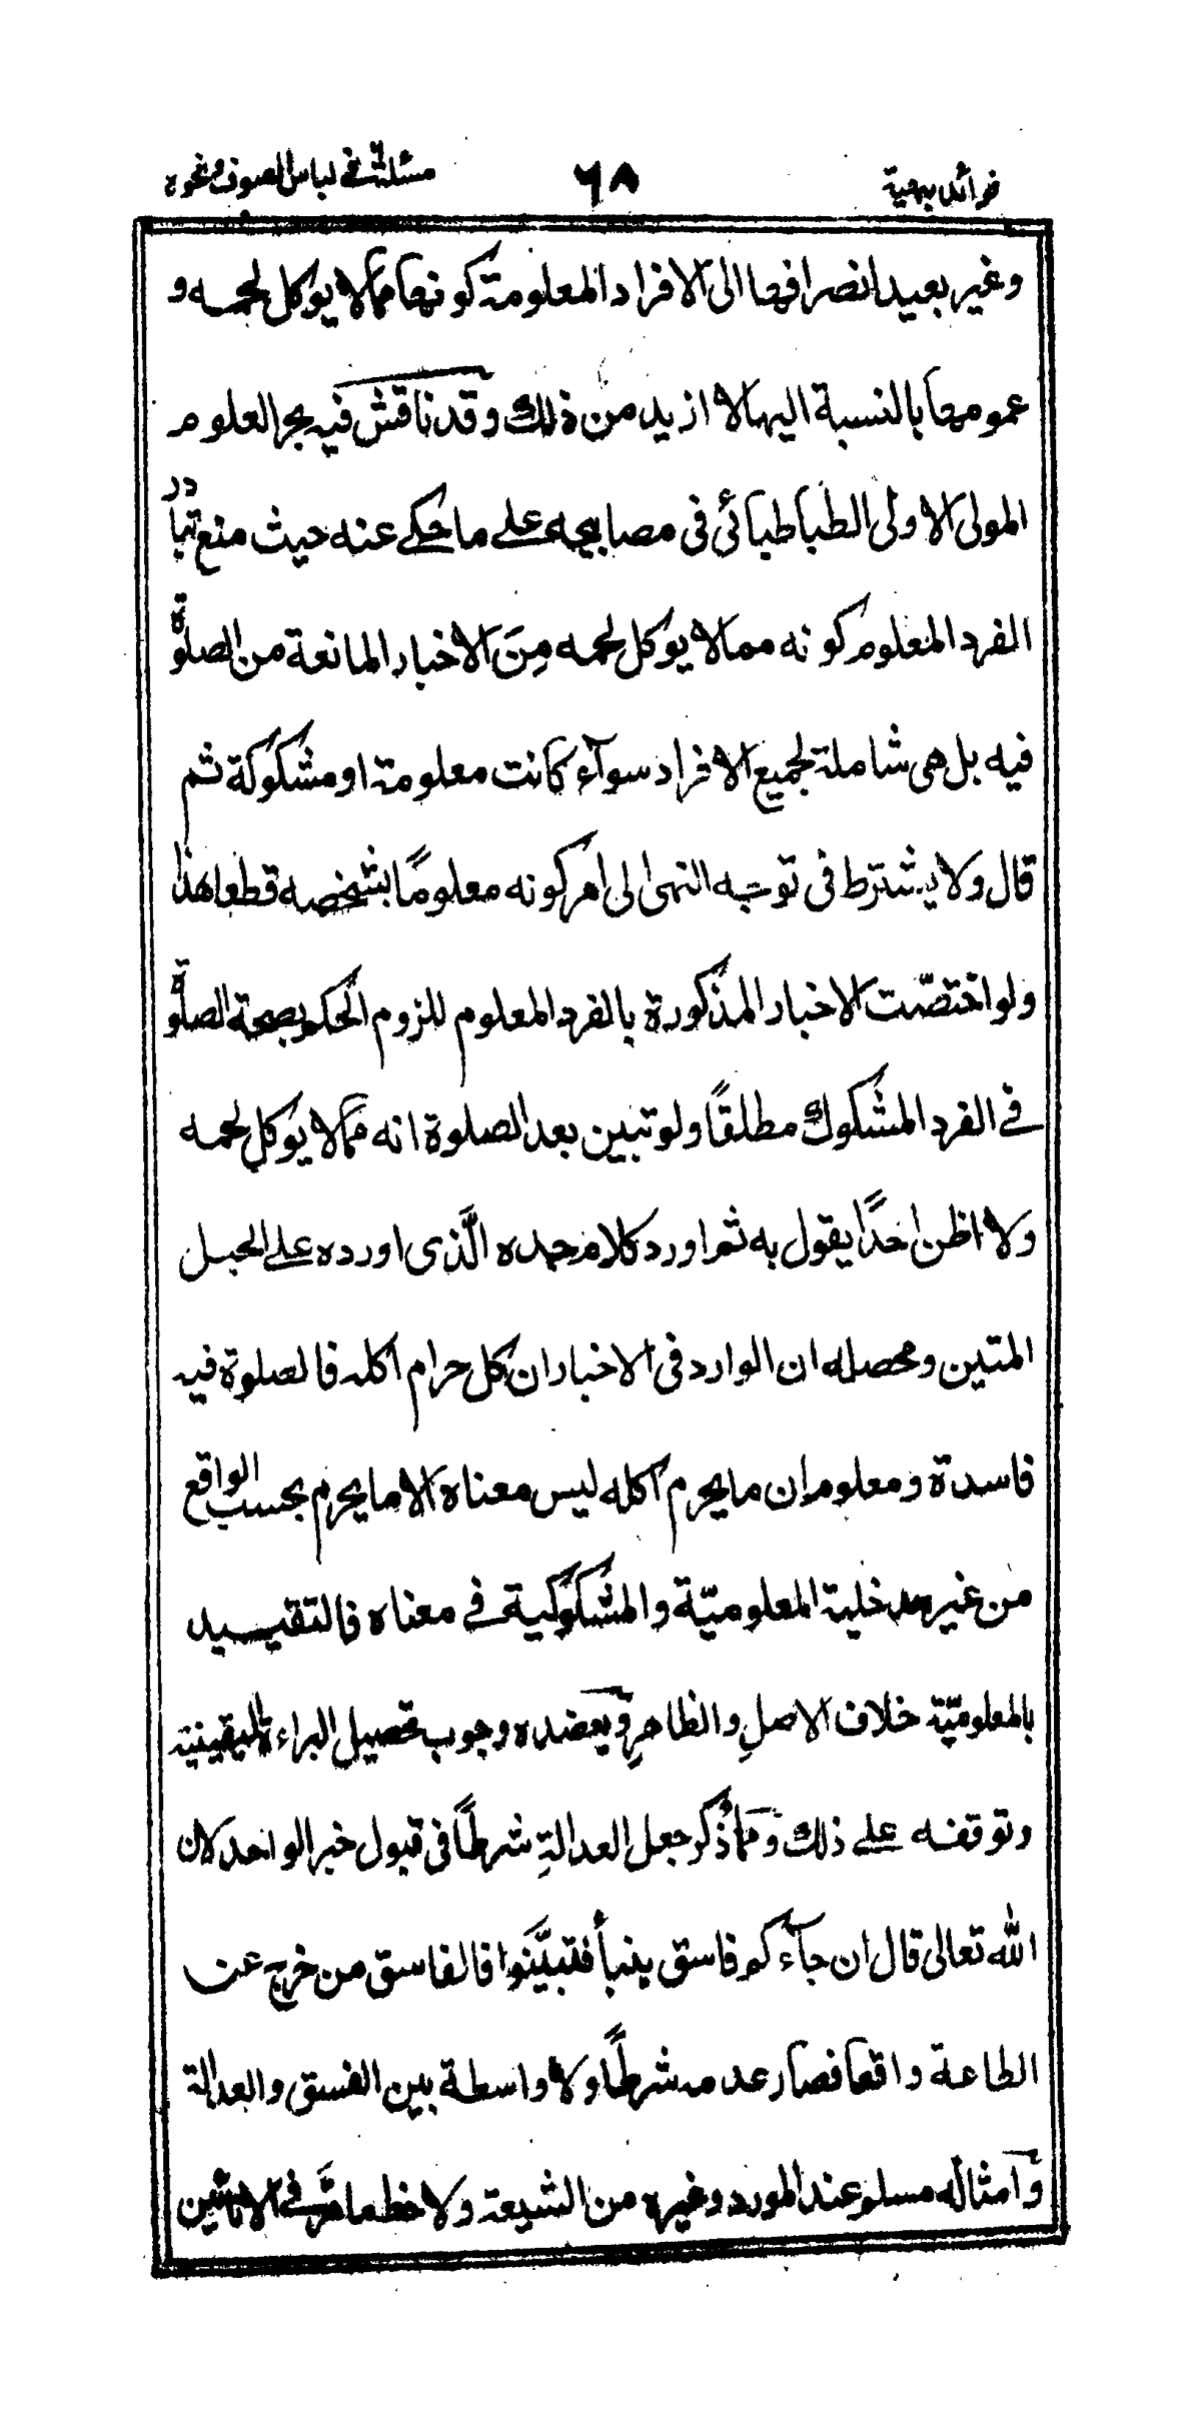 فوائد بهية
٦٨
مسئلة فى لباس الصوف ونحوه
وغير بعيد انصرافها الى الافراد المعلومة كونها ممالا يوكل لحمه و
عمومها بالنسبة اليها لا ازيد من ذلك وقد ناقش فيه بحر العلوم
المولى الاولى الطباطبائى فى مصابيحه على ما حكى عنه حيث منع تبادر
الفرد المعلوم كونه ممالا يوكل لحمه مِنَ الاخبار المانعة من الصلوة
فيه بل هى شاملة لجميع الافراد سوآء كانت معلومة او مشكوكة ثم
قال ولا يشترط فى توجه النهى الى امر كونه معلومًا بشخصه قطعا هذا
ولو اختصّت الاخبار المذكورة بالفرد المعلوم للزوم الحكم بصحة الصلوة
فى الفرد المشكوك مطلقًا ولو تبين بعد الصلوة انه ممالا يوكل لحمه
ولا اظن احدًا يقول به ثم اورد كلام جده الَّذى اورده على الحبل
المتين ومحصله ان الوارد فى الاخبار ان كل حرام اكله فالصلوة فيه
فاسدة ومعلوم ان ما يحرم اكله ليس معناه الا ما يحرم بحسب الواقع
من غير مدخلية المعلوميّة والمشكوكية فى معناه فالتقييد
بالمعلوميّة خلاف الاصلِ والظاهرِ ويعضده وجوب تحصيل البراءة اليقينية
وتوقفه على ذلك ومما ذُكر جعل العدالةِ شرطًا فى قبول خبر الواحد لان
الله تعالى قال ان جآءكم فاسق بنبأ فتبيَّنَوا فالفاسق من خرج عن
الطاعة واقعا فصار عدمه شرطًا ولا واسطة بين الفسق والعدالة
وامثاله مسلم عند المورد وغيره من الشيعة ولاحظ ما مَرَّ فى الاناثين